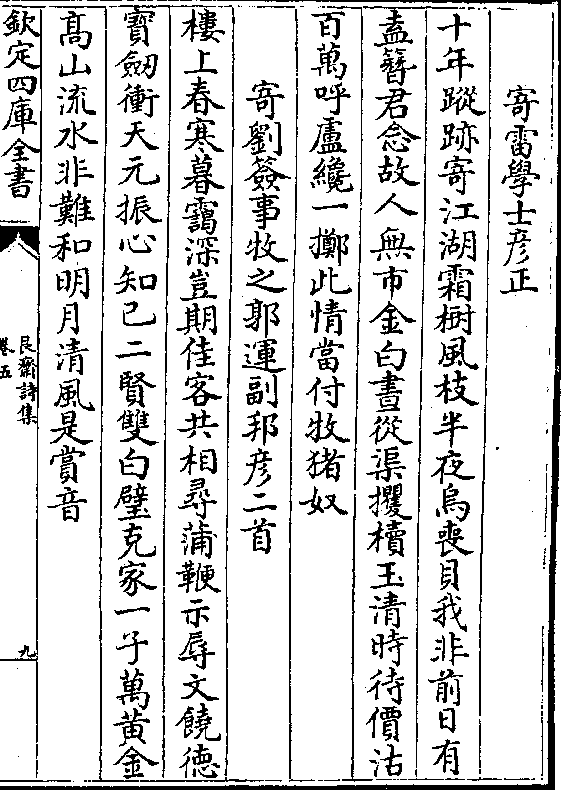 寄雷學士彦正
十年蹤跡寄江湖霜樹風枝半夜烏喪貝我非前日有
盍簪君念故人無市金白晝從渠攫櫝玉清時待價沽
百萬呼盧纔一擲此情當付牧猪奴
寄劉簽事牧之郭運副邦彦二首
樓上春寒暮靄深豈期佳客共相尋蒲鞭示辱文饒德
寳劒衝天元振心知已二賢雙白璧克家一子萬黄金
髙山流水非難和明月清風是賞音
欽定四庫全書
艮齋詩集
卷五
九